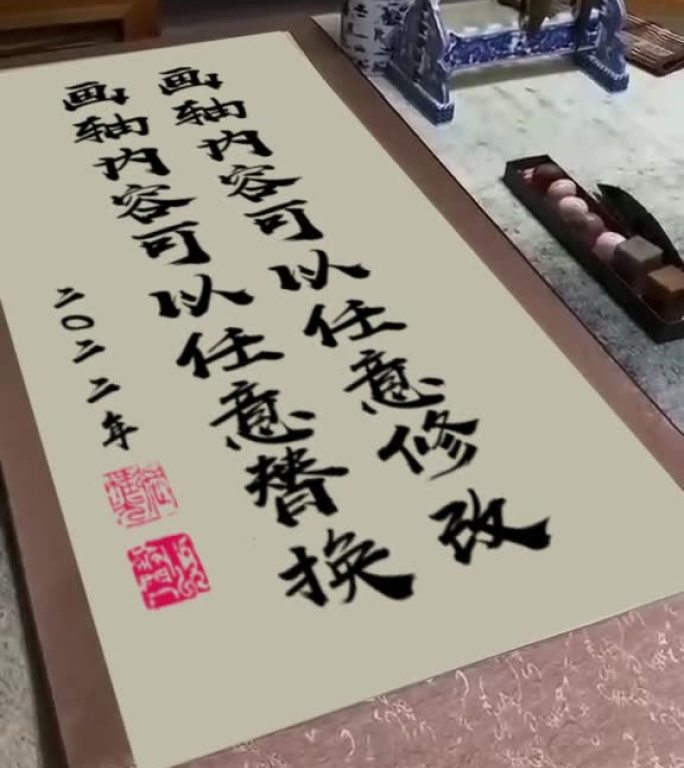 画轴内容可以任意修改
画轴内容可以任意替换
二〇二二年